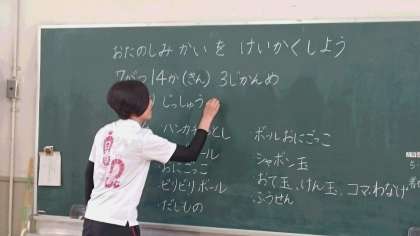 おたのしみ かいを けいかくしよう
7がつ14か(きん) 3じかんめ
じっしゅう
・ハンカチ とし
ール
おにごっこ
・ビリビリボール
・だしもの
・ボールおにごっこ
・シャボン玉
・おて玉、けん玉、コマ・わなげ
・ふうせん